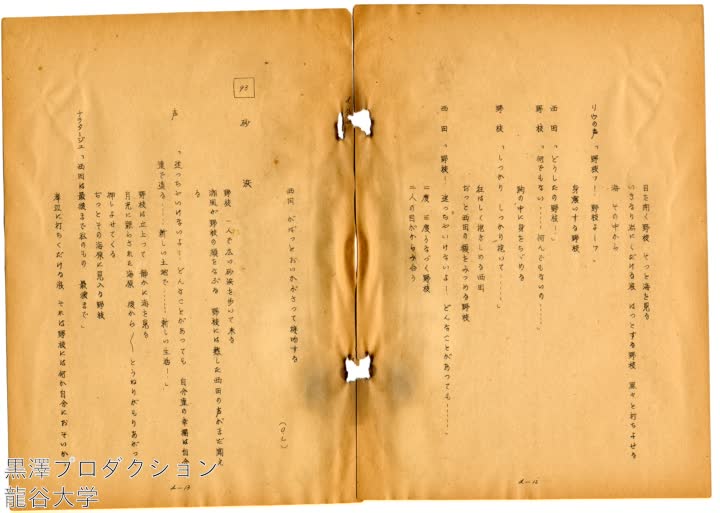 目を開く野枝 そっと海を見る
いきなり岩にくだける波 はっとする野枝 黒々と打ちよせる
海 その中から
リウの声「野枝ァ! 野枝よーァ」
身震いする野枝
西田「どうしたの野枝!」
野枝「何でもない…… 何んでもないの……」
胸の中に身をちゞめる
野枝「しっかり しっかり抱いて……」
狂ほしく抱きしめる西田
じっと西田の顔をみつめる野枝
西田「野枝! 迷っちゃいけないよ! どんなことがあっても……」
二度 三度うなづく野枝
二人の目がからみ合う
d-12
西田 がばっとおいかぶさって接吻する
(O.L)
93 砂浜
野枝 一人で広い砂浜を歩いて来る
潮風が野枝の頬をなぶる 野枝には熱した西田の声がまだ聞え
る
声「迷っちゃいけないよ! どんなことがあっても 自分達の幸福は自分
達で造る…… 新しい土地で…… 新しい生活!」
野枝は立上って 静かに海を見る
月光に照らされた海原 後から〱とうねりがもりあがって
押しよせてくる
じっとその海原に見入る野枝
ナラタージュ「西田は最後まで私のもの 最後まで」
岸辺に打ちくだける波 それは野枝には何か自分におそいか
d-13
黒澤プロダクション
龍谷大学